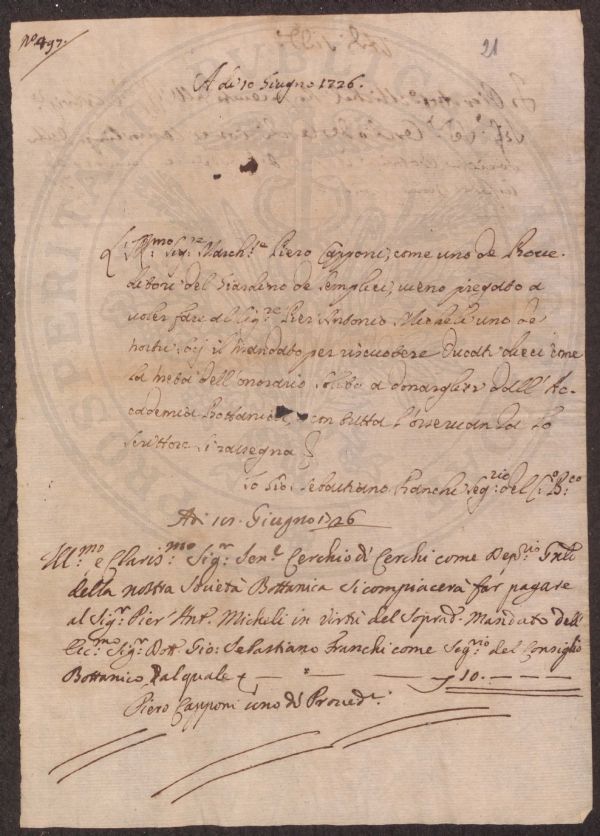 No. 497.
21
A dì 10 Giugno 1726.
L'Ill.mo Sig.re March.e Piero Capponi, come uno de Prove-
ditori del Giardino de Semplici, vieno pregato a
voler fare al Sig.re Pier Antonio Micheli uno de
nostri Socj il Mandato per riscuotere Ducati dieci come
la metà dell'onorario solito a donarglisi dall'Ac-
cademia Bottanica, e con tutta l'osservanza lo
Scrittore si rassegna
Io Gio: Sebastiano Franchi Seg.rio del C.o B.co
A dì 101. Giugno 1726
Ill.mo e Claris.mo Sig.r Sen.e Cerchio di Cerchi come Dep.rio Gnli
della nostra Società Bottanica si compiacerà far pagare
al Sig.r Pier Ant. Micheli in virtù del Soprad. Mandato dell'
Ecc.mo Sig.r Dott. Gio: Sebastiano Franchi come Seg.rio del Consiglio
Bottanico, dal quale — — 10. — — —
Piero Capponi uno dì Proved.i
PROSPERITATI PUBLICAE